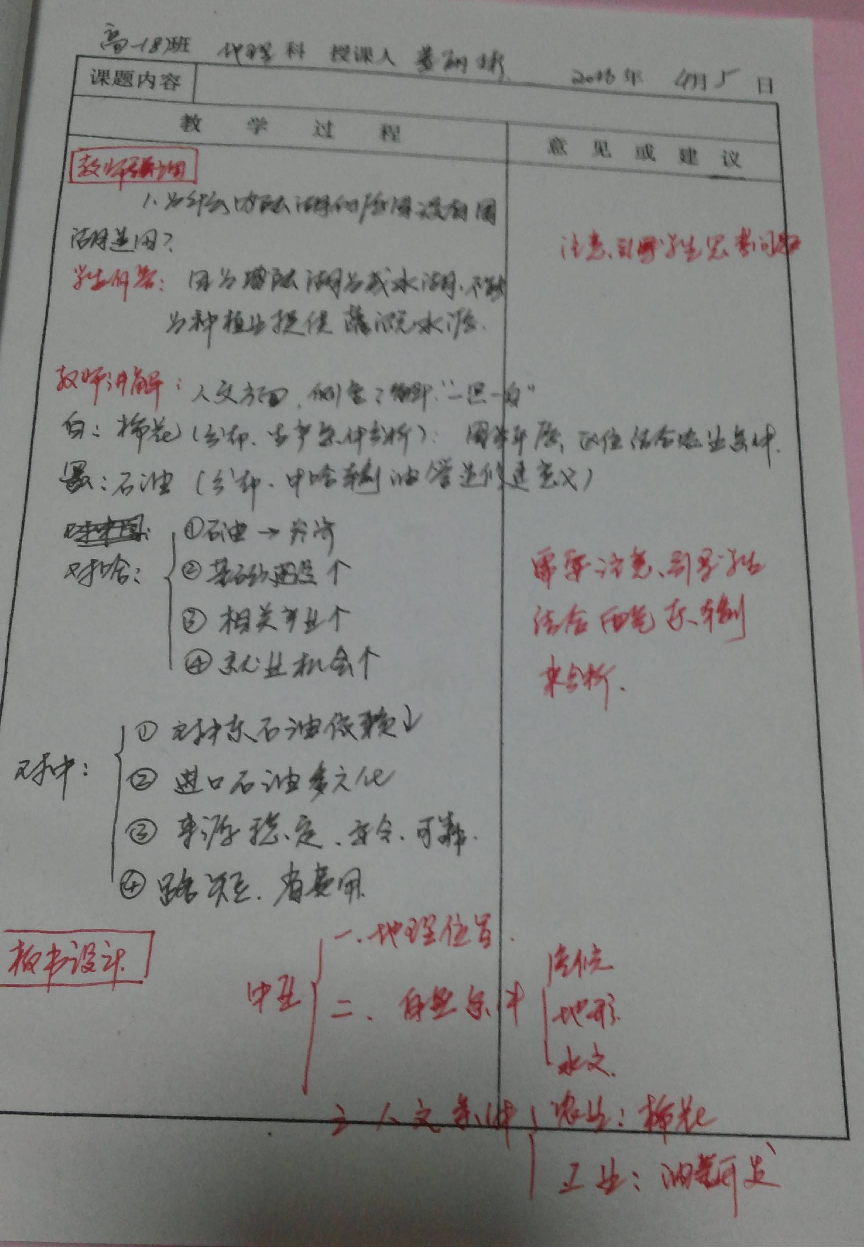 高一(8)班 地理科 授课人 2016年 4月5日
课题内容
教学过程
意见或建议
教师
1. 为什么 湖的 没有
湖
注意、引导学生思考问题
学生回答：因为 湖为咸水湖，不能
为种植业提供灌溉水源.
教师讲解：人文方面，"一黑一白"
白：棉花（分布、生产条件分析）： 结合农业条件.
黑：石油（分布、中哈 油管道修建意义）
对哈：
①石油→经济
②基础建设个
③相关产业个
④就业机会个
需要注意、引导学生
结合 案例
来分析.
对中：
①对中东石油依赖↓
②进口石油多元化
③来源稳定、安全、可靠.
④路短、省费用.
板书设计
中亚
一、地理位置.
二、自然条件
气候
地形
水文.
三 人文条件
农业：棉花
工业：油气开发